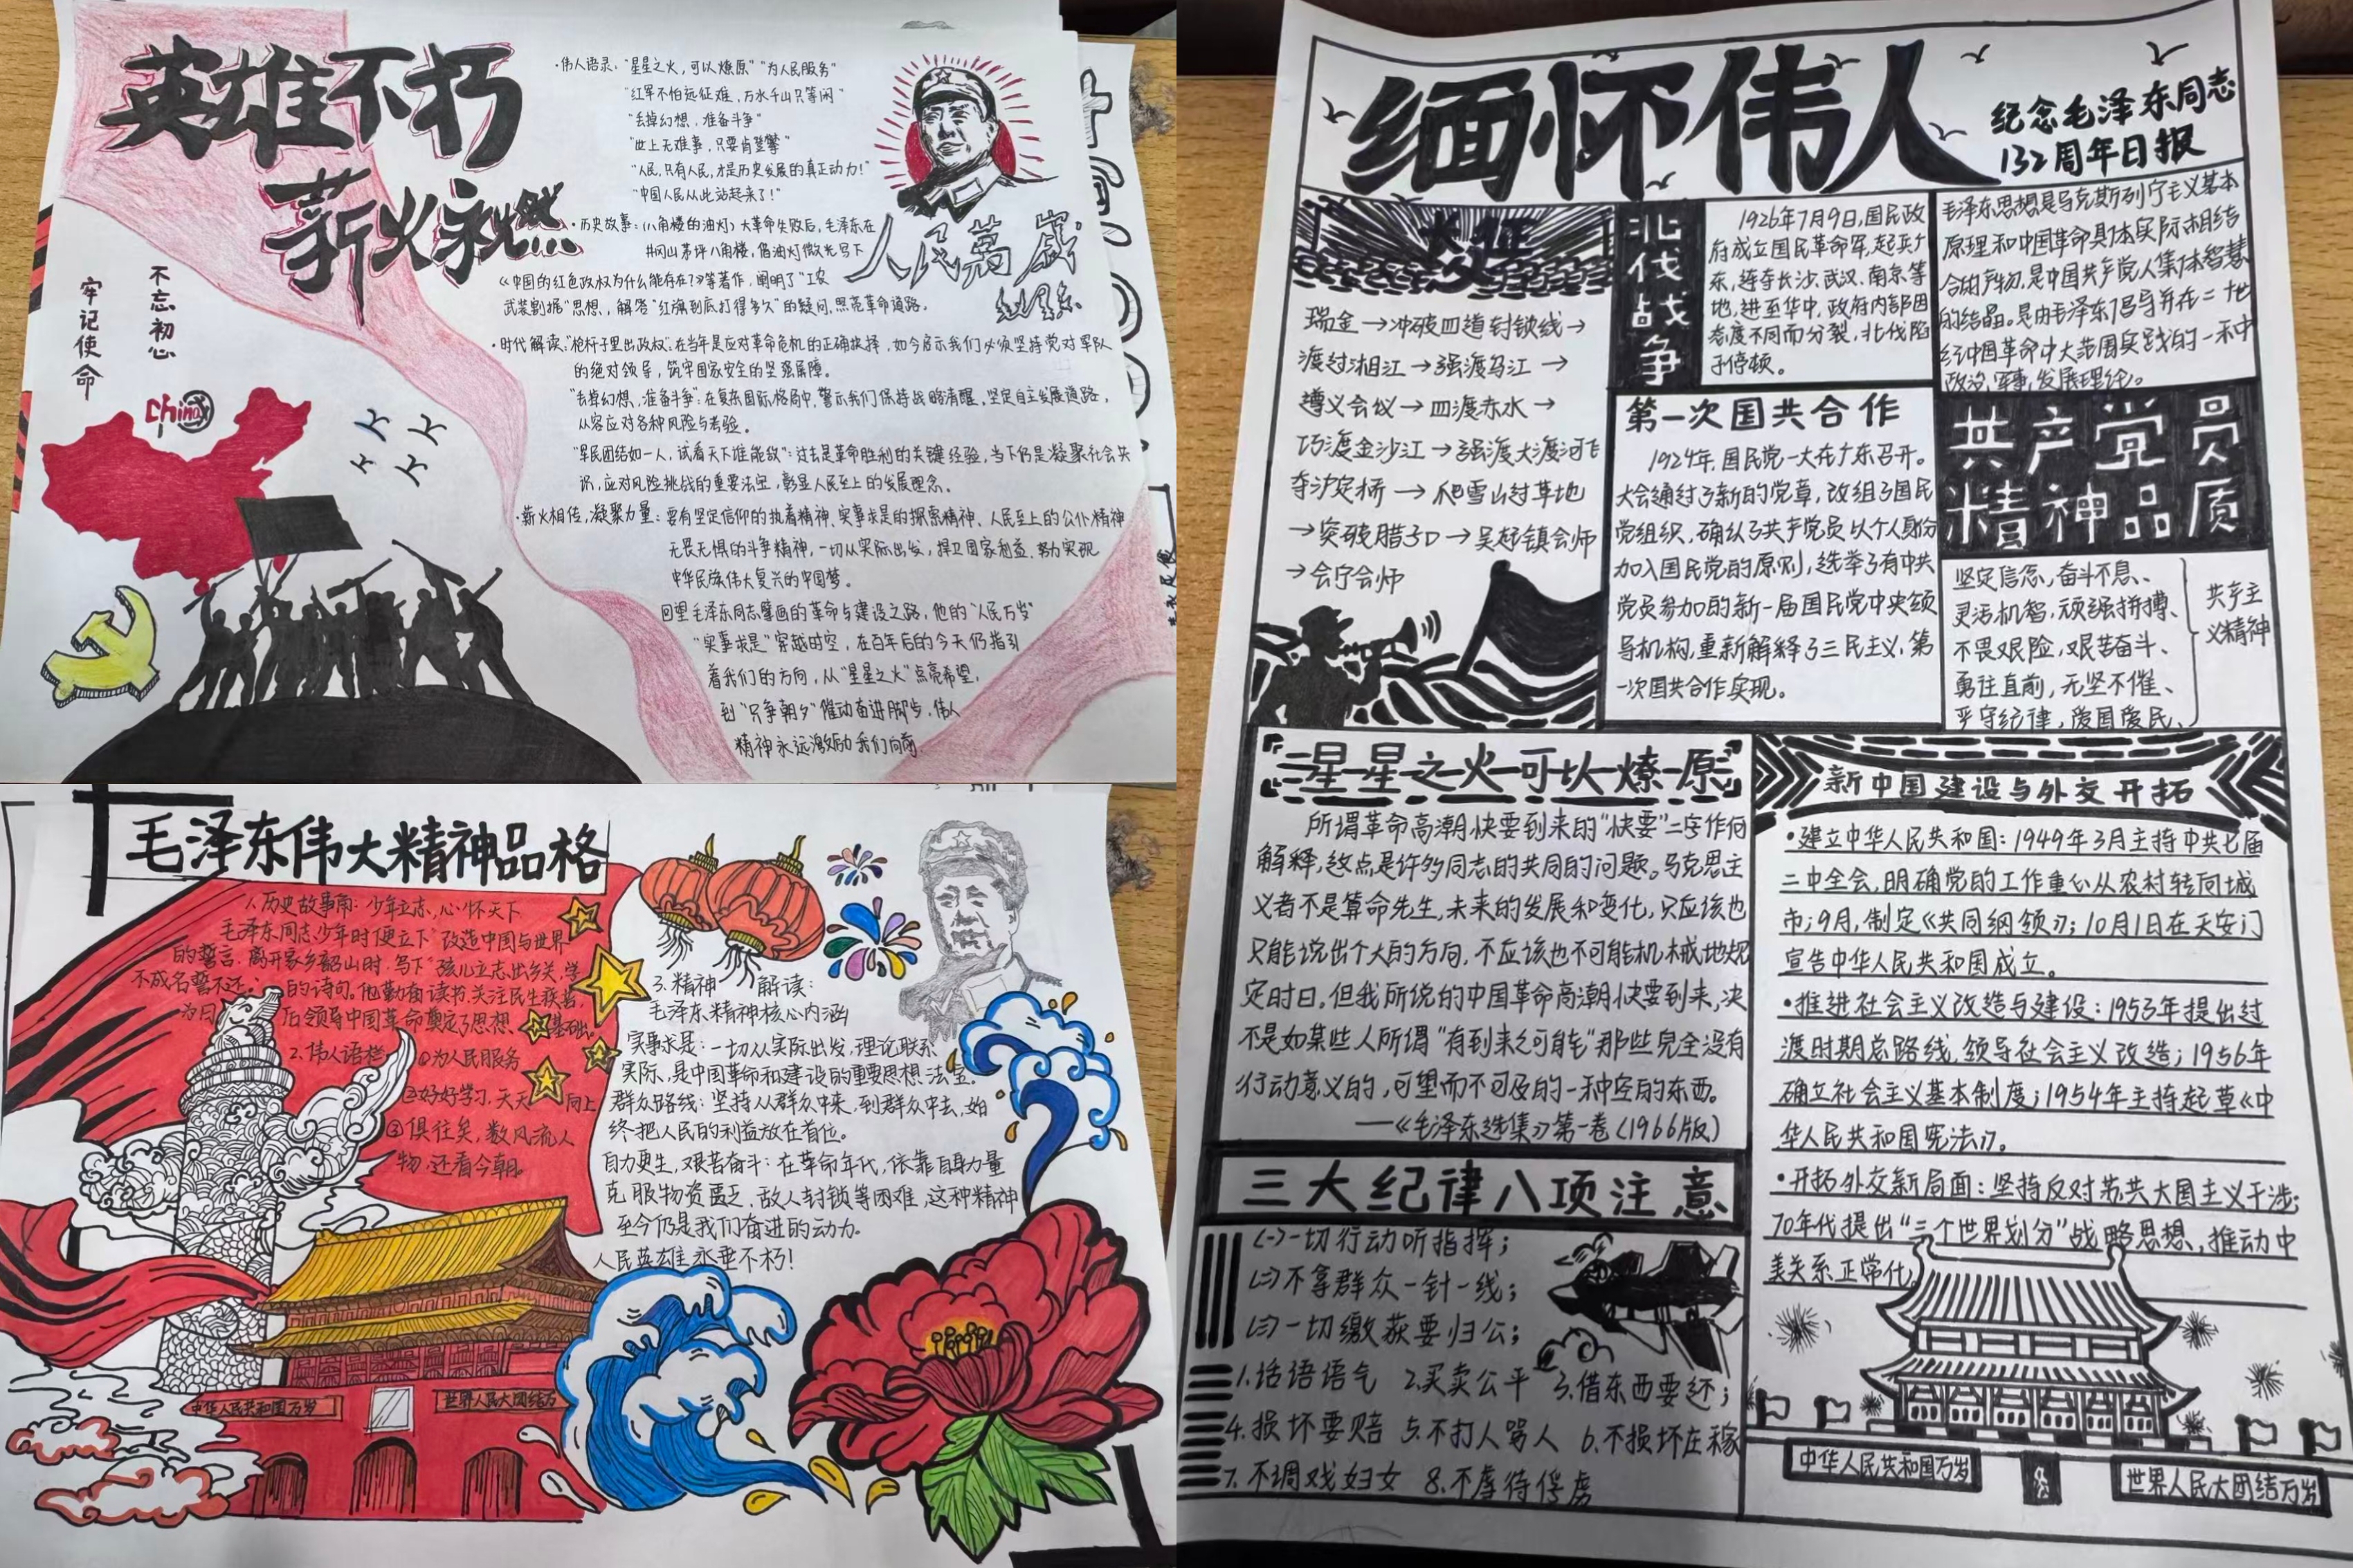 英雄不朽
薪火永燃
不忘初心
牢记使命
China
·伟人语录:“星星之火,可以燎原”“为人民服务”
“红军不怕远征难,万水千山只等闲”
“丢掉幻想,准备斗争”
“世上无难事,只要肯登攀”
“人民,只有人民,才是历史发展的真正动力!”
“中国人民从此站起来了!”
·历史故事:(八角楼的油灯)大革命失败后,毛泽东在
井冈山茅坪八角楼,借油灯微光写下
《中国的红色政权为什么能存在?》等著作,阐明了“工农
武装割据”思想,解答“红旗到底打得多久”的疑问,照亮革命道路。
人民萬歲
毛泽东
·时代解读:“枪杆子里出政权”:在当年是应对革命危机的正确抉择,如今启示我们必须坚持党对军队
的绝对领导,筑牢国家安全的坚强屏障。
“丢掉幻想,准备斗争”:在复杂国际格局中,警示我们保持战略清醒,坚定自主发展道路,
从容应对各种风险与考验。
“军民团结如一人,试看天下谁能敌”:过去是革命胜利的关键经验,当下仍是凝聚社会共
识,应对风险挑战的重要法宝,彰显人民至上的发展理念。
·薪火相传,凝聚力量:要有坚定信仰的执着精神、实事求是的探索精神、人民至上的公仆精神
无畏无惧的斗争精神,一切从实际出发,捍卫国家利益,努力实现
中华民族伟大复兴的中国梦。
回望毛泽东同志擘画的革命与建设之路,他的“人民万岁”
“实事求是”穿越时空,在百年后的今天仍指引
着我们的方向,从“星星之火”点亮希望,
到“只争朝夕”催动奋进脚步,伟人
精神永远激励我们向前
毛泽东伟大精神品格
1.历史故事角:少年立志,心怀天下
毛泽东同志少年时便立下“改造中国与世界”
的誓言,离开家乡韶山时,写下“孩儿立志出乡关,学
不成名誓不还”的诗句。他勤奋读书,关注民生疾苦,
为日后领导中国革命奠定了思想基础。
2.伟人语栏 ①为人民服务
②好好学习,天天向上
③俱往矣,数风流人
物,还看今朝。
3.精神解读:
毛泽东精神核心内涵
实事求是:一切从实际出发,理论联系
实际,是中国革命和建设的重要思想法宝。
群众路线:坚持从群众中来,到群众中去,始
终把人民的利益放在首位。
自力更生,艰苦奋斗:在革命年代,依靠自身力量
克服物资匮乏、敌人封锁等困难,这种精神
至今仍是我们奋进的动力。
人民英雄永垂不朽!
中华人民共和国万岁
世界人民大团结万
缅怀伟人
纪念毛泽东同志
132周年日报
长征
瑞金→冲破四道封锁线→
渡过湘江→强渡乌江→
遵义会议→四渡赤水→
巧渡金沙江→强渡大渡河飞
夺泸定桥→爬雪山过草地
→突破腊子口→吴起镇会师
→会宁会师
北伐战争
1926年7月9日,国民政
府成立国民革命军,起兵广
东,连夺长沙、武汉、南京等
地,进至华中,政府内部因
态度不同而分裂,北伐陷
于停顿。
毛泽东思想是马克斯列宁主义基本
原理和中国革命具体实际相结
合的产物,是中国共产党人集体智慧
的结晶。是由毛泽东倡导并在二十世
纪中国革命中大范围实践的一种中
政治、军事、发展理论。
第一次国共合作
1924年,国民党一大在广东召开。
大会通过了新的党章,改组了国民
党组织,确认了共产党员以个人身份
加入国民党的原则,选举了有中共
党员参加的新一届国民党中央领
导机构,重新解释了三民主义,第
一次国共合作实现。
共产党员
精神品质
坚定信念,奋斗不息、
灵活机智,顽强拼搏、
不畏艰险,艰苦奋斗、
勇往直前,无坚不催、
严守纪律,爱国爱民、
共产主
义精神
星星之火可以燎原
所谓革命高潮快要到来的“快要”二字作何
解释,这点是许多同志的共同的问题。马克思主
义者不是算命先生,未来的发展和变化,只应该也
只能说出个大的方向,不应该也不可能机械地规
定时日。但我所说的中国革命高潮快要到来,决
不是如某些人所谓“有到来之可能”那些完全没有
行动意义的,可望而不可及的一种空的东西。
——《毛泽东选集》第一卷(1966版)
三大纪律八项注意
(一)一切行动听指挥;
(二)不拿群众一针一线;
(三)一切缴获要归公;
1.话语语气 2.买卖公平 3.借东西要还;
4.损坏要赔 5.不打人骂人 6.不损坏庄稼
7.不调戏妇女 8.不虐待俘虏
新中国建设与外交开拓
·建立中华人民共和国:1949年3月主持中共七届
二中全会,明确党的工作重心从农村转向城
市;9月,制定《共同纲领》;10月1日在天安门
宣告中华人民共和国成立。
·推进社会主义改造与建设:1953年提出过
渡时期总路线,领导社会主义改造;1956年
确立社会主义基本制度;1954年主持起草《中
华人民共和国宪法》。
·开拓外交新局面:坚持反对苏共大国主义干涉;
70年代提出“三个世界划分”战略思想,推动中
美关系正常化
中华人民共和国万岁
世界人民大团结万岁